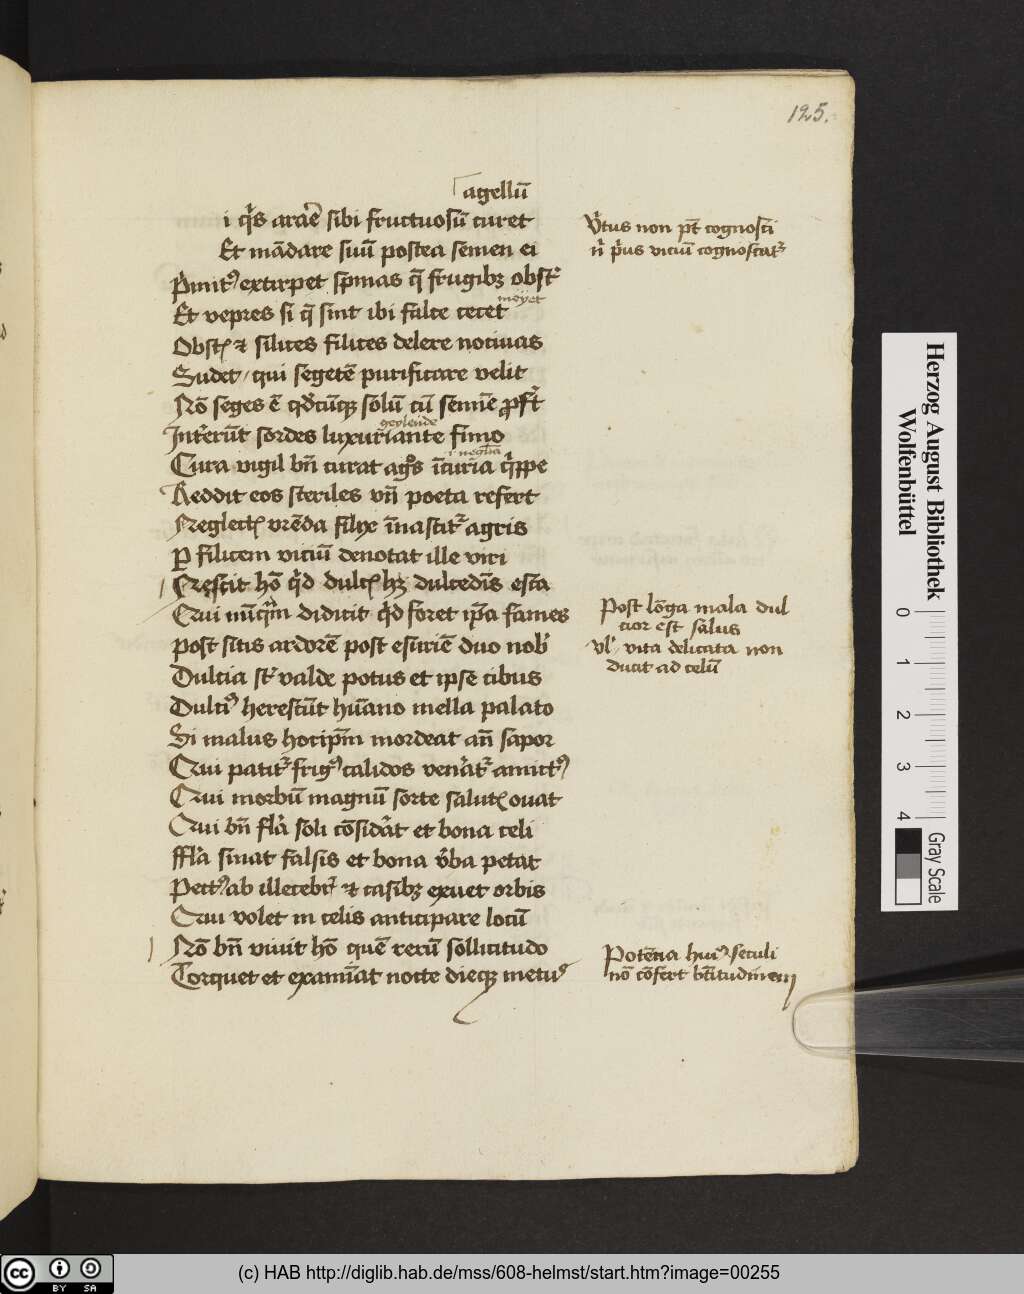 125.
agellū
i qͥs araē sibi fructuosū curet
Et mādare suū postea semen ei
Pͥmitꝰ extirpet spinas q̄ frugibꝫ obstᷣ
meyet
Et vepres si q̄ sint ibi falce tecet
Obstꝭ ⁊ silices filices delere nocivas
Sudet / qui segetē purificare velit
Nō seges ē qdcūqꝫ solū cū semīe ꝓfꝭt
geylende
Int̄erūt sordes luxuriante fimo
i neglīa
Cura vigil bn̄ curat agᷤos īcuria qͥppe
Reddit eos steriles vn̄ poeta refert
Neglectꝭ vrēda filix īnascitᷣ agris
ꝑ filicem viciū denotat ille viri
Crescit hō qͥd dulcꝭ hꝫ dulcedīs esca
Qui nūqͣm didicit qͥd foret ip̄a fames
post sitis ardorē post esuriē duo nobͥ
Dulcia sᷣt valde potus et ipse cibus
Dulciꝰ herescūt hūano mella palato
Si malus hoc ip̄m mordeat an̄ sapor
Qui patitᷣ frigꝰ calidos venatᷣ amictꝰ
Qui morbū magnū sorte salutꝭ ovat
Qui bn̄ flā soli cōsidāt et bona celi
Fflā sinat falsis et bona v̄ba petat
Pectꝰ ab illecebrꝭ ⁊ casibꝫ exuet orbis
Qui volet in celis anticipare locū
Nō bn̄ vivit hō quē rerū sollicitudo
Torquet et examīat nocte dieqꝫ metuꝰ
V̓tus non pt̄ cognosci
nͥ pͥus viciū cognoscatᷣ
Post lōga mala dul
cior est salus
vlͥ / vita delicata non
ducit ad celū
Potētia huiꝰ seculi
nō cōfert btītudinem
Herzog August Bibliothek
Wolfenbüttel
0 1 2 3 4
Gray Scale
cc BY SA
(c) HAB http://diglib.hab.de/mss/608-helmst/start.htm?image=00255